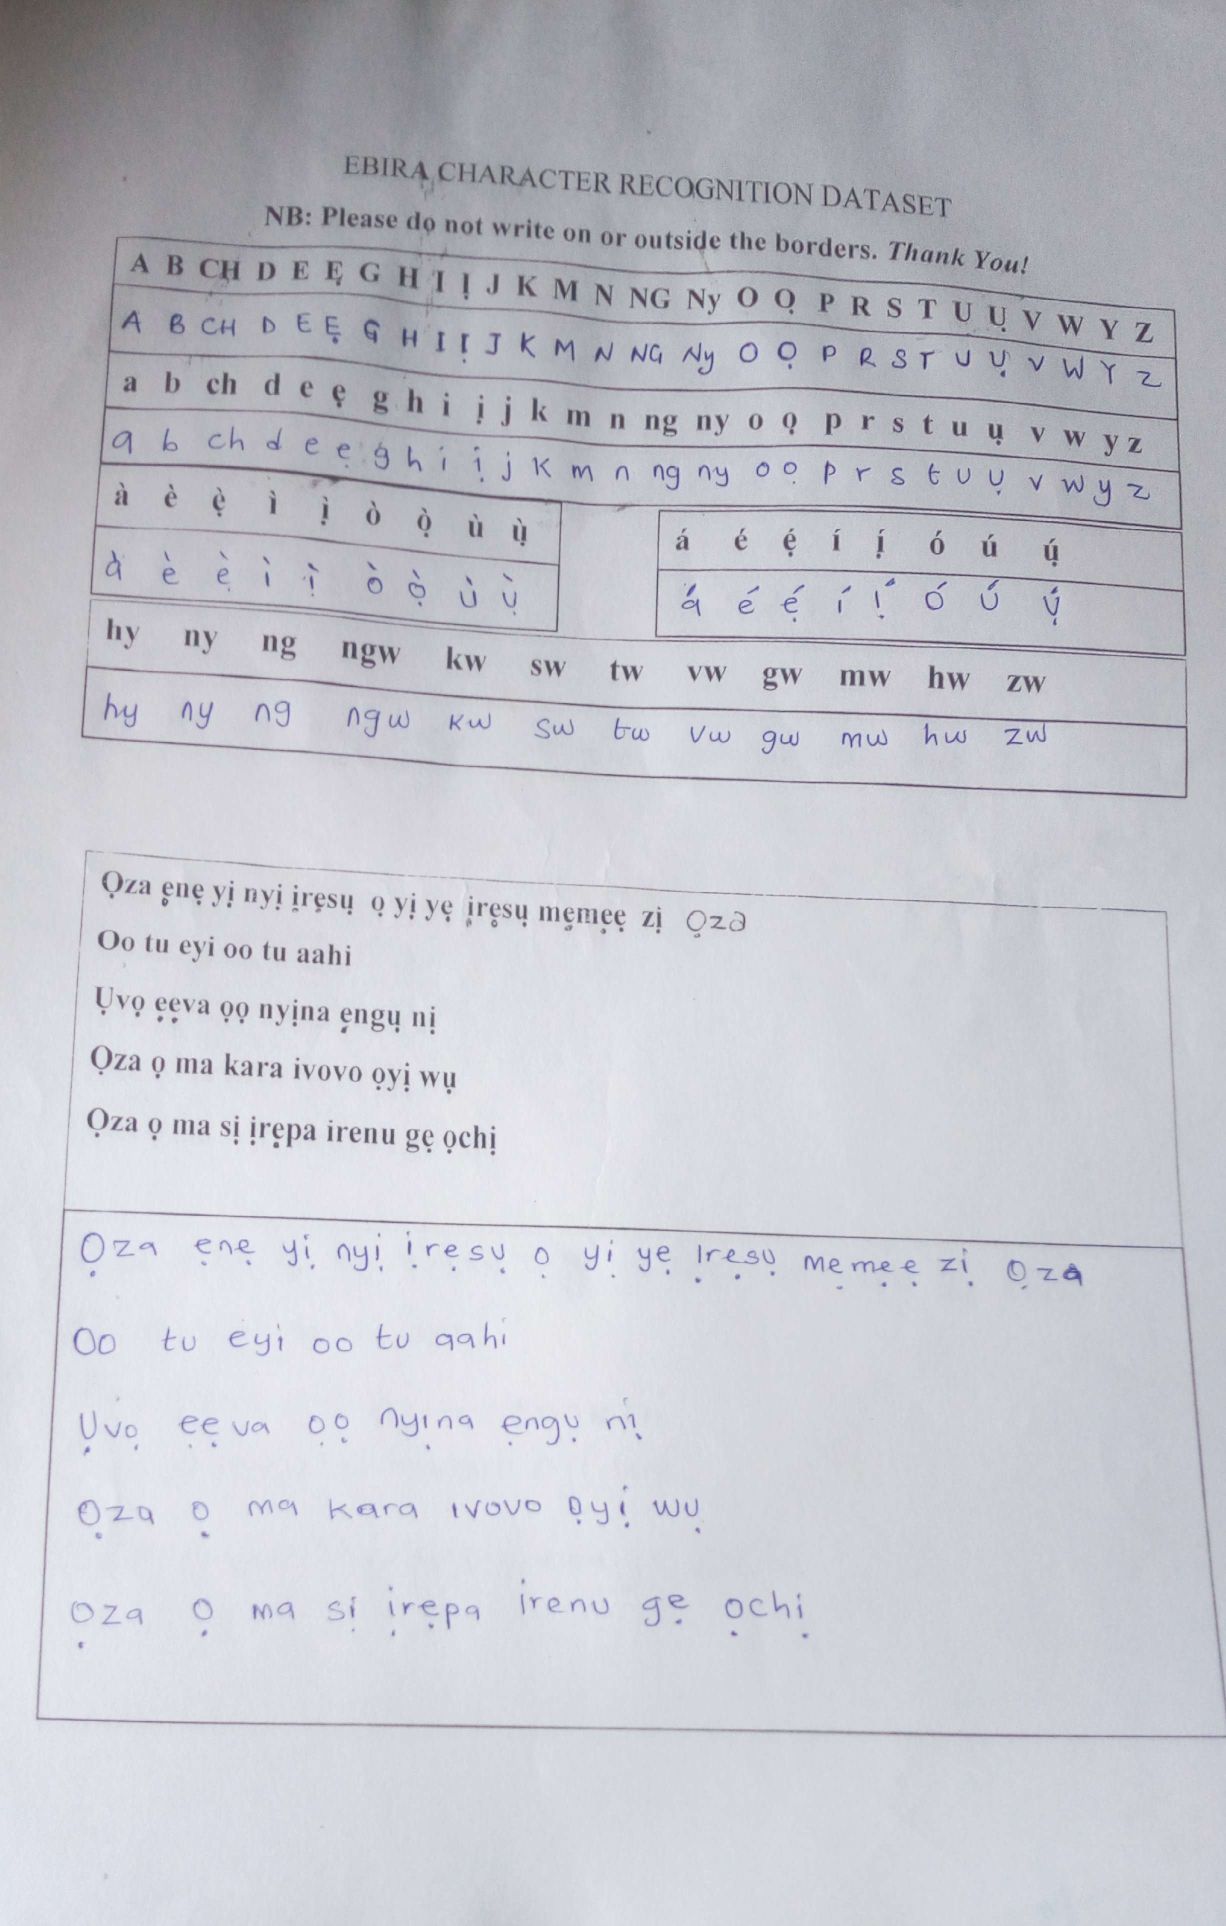 EBIRA CHARACTER RECOGNITION DATASET
NB: Please do not write on or outside the borders. Thank You!
A B CH D E Ẹ G H I Ị J K M N NG Ny O Ọ P R S T U Ụ V W Y Z
A B CH D E Ẹ G H I Ị J K M N NG Ny O Ọ P R S T U Ụ V W Y Z
a b ch d e ẹ g h i ị j k m n ng ny o ọ p r s t u ụ v w y z
a b ch d e ẹ g h i ị j k m n ng ny o ọ p r s t u ụ v w y z
à è ẹ̀ ì ị̀ ò ọ̀ ù ụ̀ á é ẹ́ í ị́ ó ú ụ́
à è ẹ̀ ì ị̀ ò ọ̀ ù ụ̀ á é ẹ́ í ị́ ó ú ụ́
hy ny ng ngw kw sw tw vw gw mw hw zw
hy ny ng ngw kw sw tw vw gw mw hw zw
Ọza ẹnẹ yị nyị ịrẹsụ ọ yị yẹ ịrẹsụ mẹmẹẹ zị Ọza
Oo tu eyi oo tu aahi
Ụvọ ẹẹva ọọ nyịna ẹngụ nị
Ọza ọ ma kara ivovo ọyị wụ
Ọza ọ ma sị ịrẹpa irenu gẹ ọchị
Ọza ẹnẹ yị nyị ịrẹsụ ọ yị yẹ ịrẹsụ mẹmẹẹ zị Ọza
Oo tu eyi oo tu aahi
Ụvọ ẹẹva ọọ nyịna ẹngụ nị
Ọza ọ ma kara ivovo ọyị wụ
Ọza ọ ma sị ịrẹpa irenu gẹ ọchị